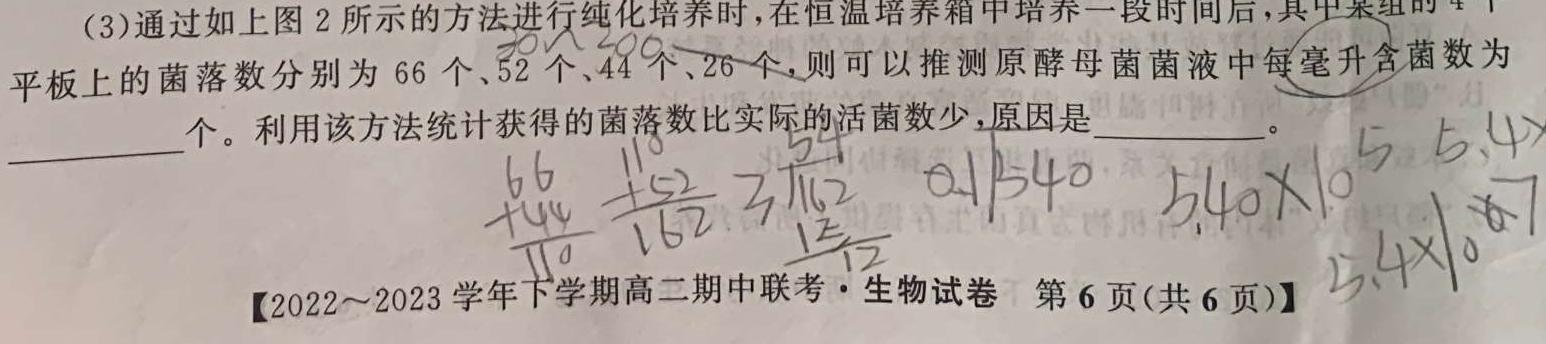 (3)通过如上图 2 所示的方法进行纯化培养时,在恒温培养箱中培养一段时间后,其中某组的 4 个
30~200
平板上的菌落数分别为 66 个、52 个、44 个、26 个,则可以推测原酵母菌菌液中每毫升含菌数为
________个。利用该方法统计获得的菌落数比实际的活菌数少,原因是________。
66
+44
110
110
+52
162
54
3 162
15
12
0.1 540
540×10 5
5.4×
5.4×10 7
【2022~2023 学年下学期高二期中联考·生物试卷 第 6 页(共 6 页)】